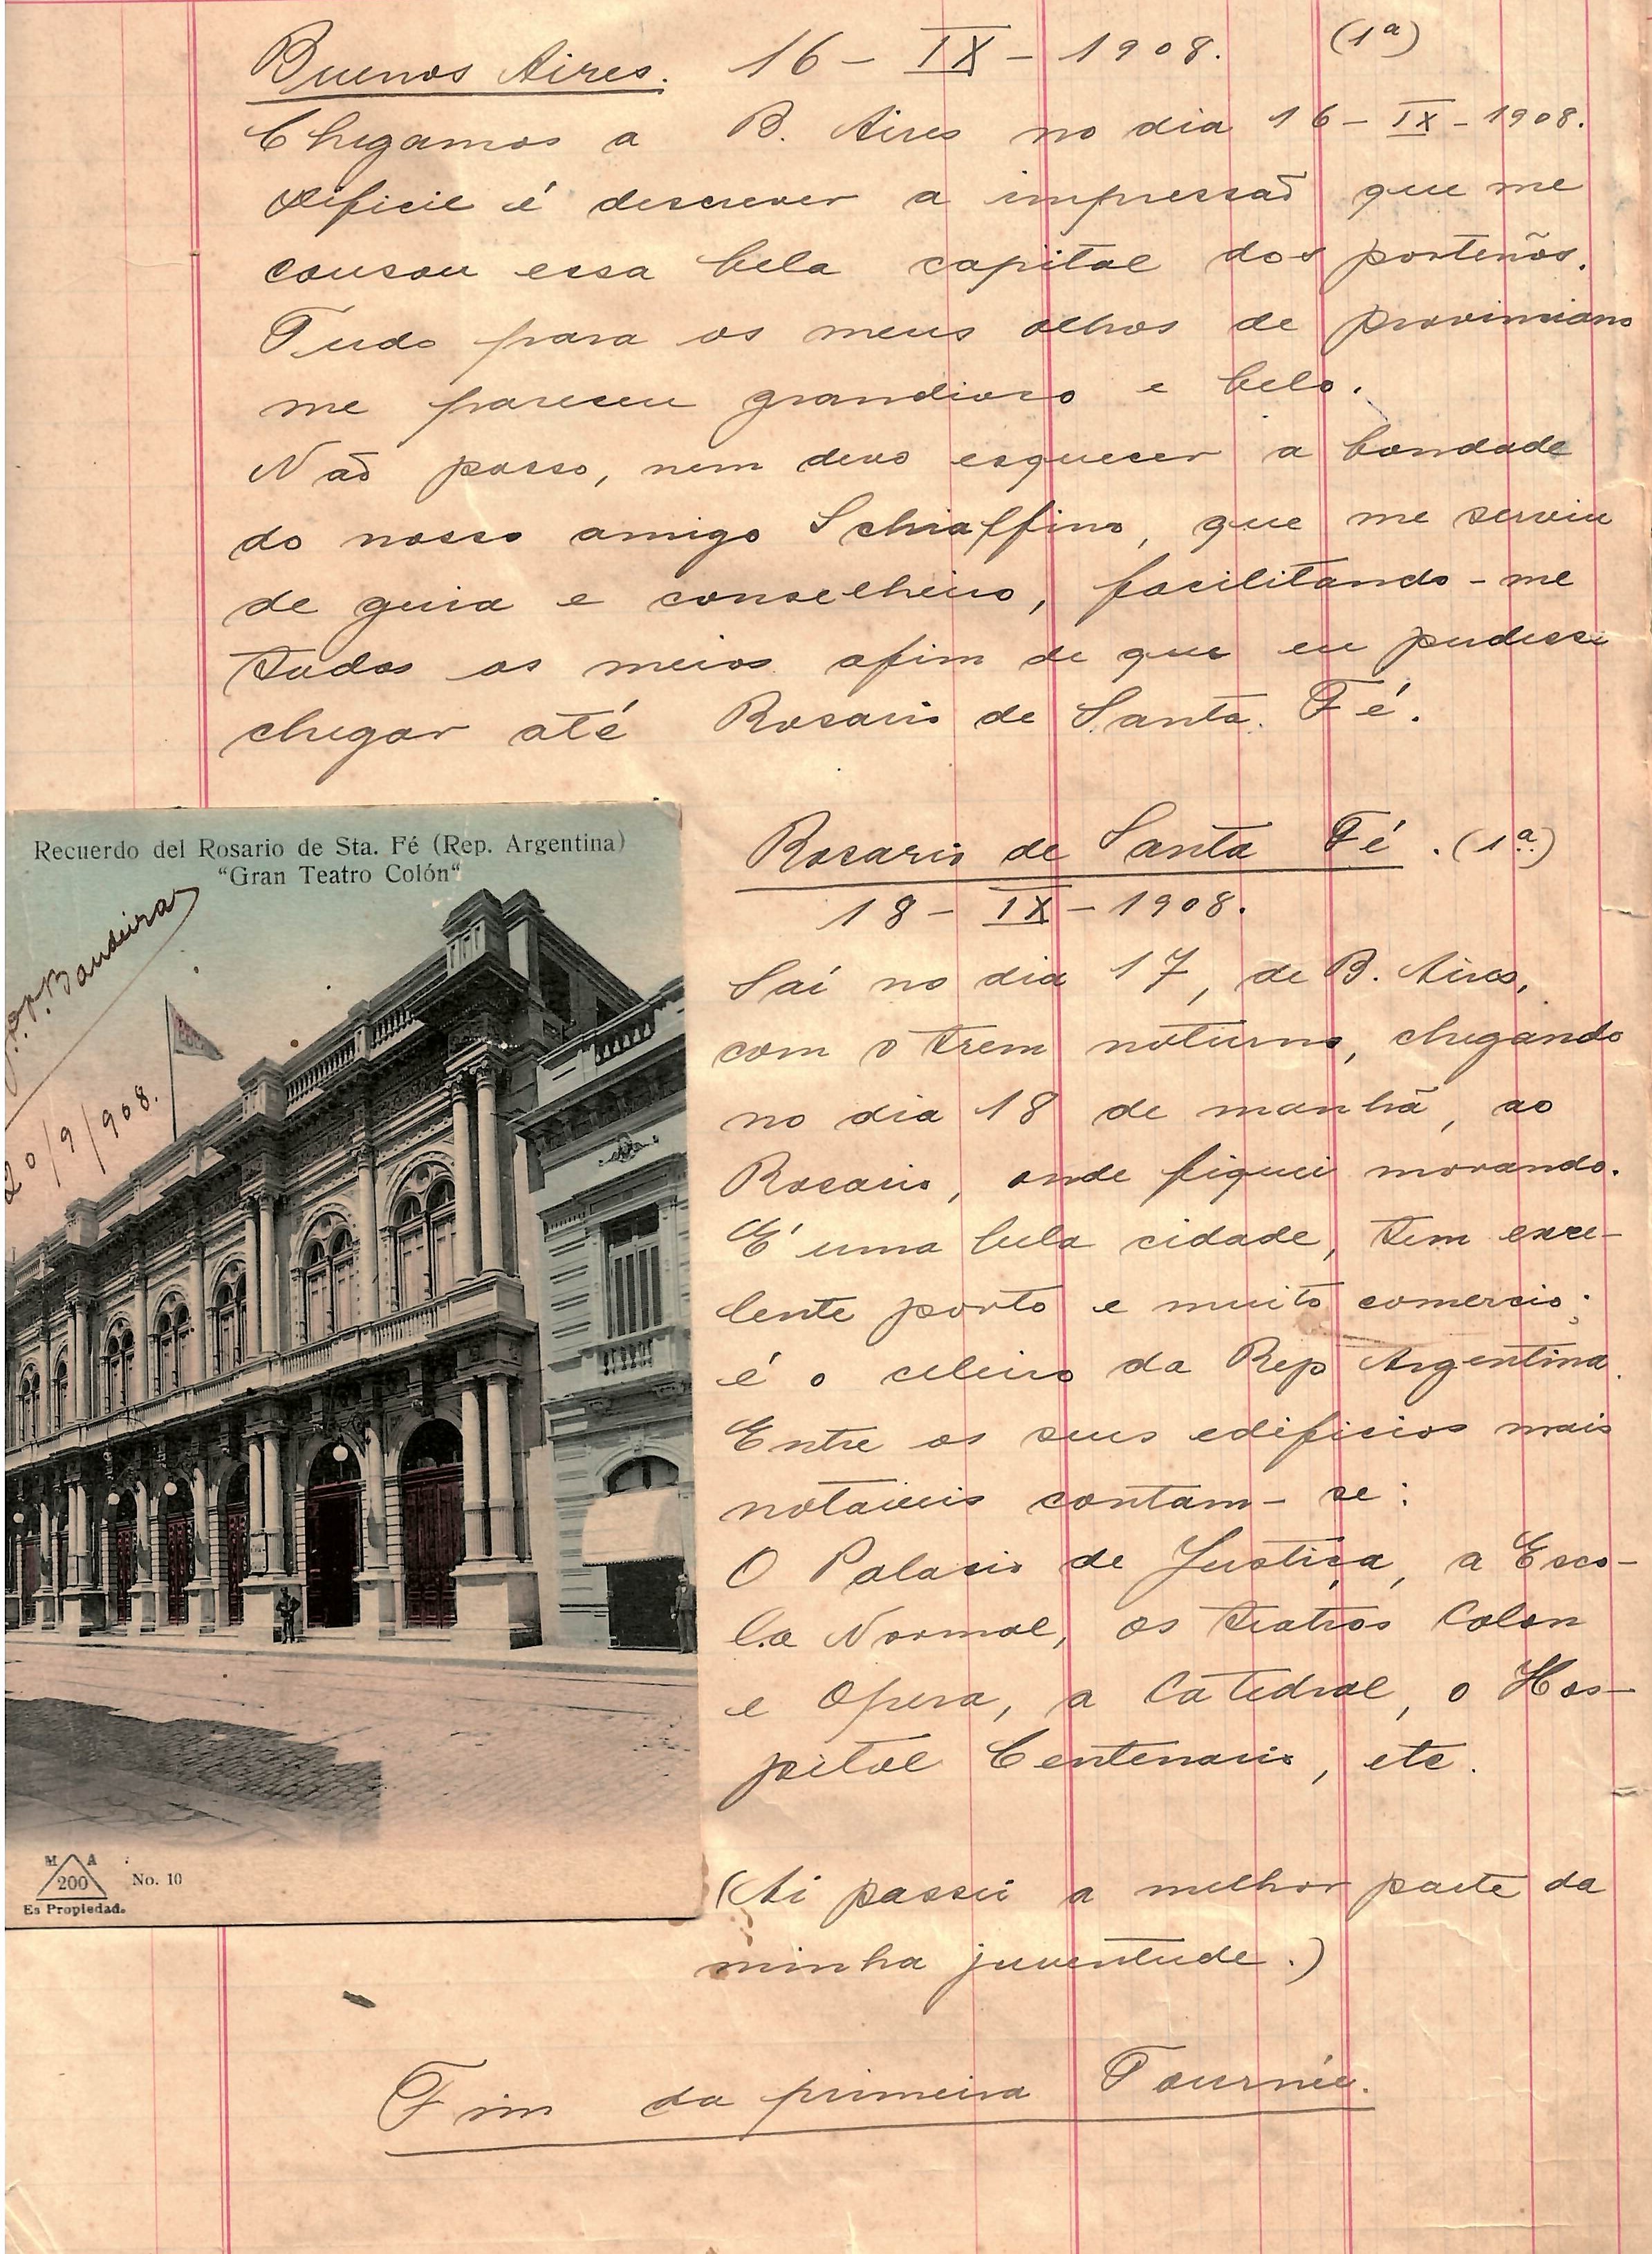 Buenos Aires. 16 - IX - 1908. (1ª)
Chegamos a B. Aires no dia 16 - IX - 1908.
Dificil é descrever a impressão que me
causou essa bela capital dos porteños.
Tudo para os meus olhos de provinciano
me pareceu grandioso e belo.
Não posso, nem devo esquecer a bondade
do nosso amigo Schiaffino, que me serviu
de guia e conselheiro, facilitando-me
todos os meios afim de que eu pudesse
chegar até Rosario de Santa Fé.
Recuerdo del Rosario de Sta. Fé (Rep. Argentina)
"Gran Teatro Colón"
Bandeira
20/9/908.
M A
200
No. 10
Es Propiedad.
Rosario de Santa Fé. (1ª)
18 - IX - 1908.
Saí no dia 17, de B. Aires,
com o trem noturno, chegando
no dia 18 de manhã, ao
Rosario, onde fiquei morando.
É uma bela cidade, tem exce-
lente porto e muito comercio;
é o celeiro da Rep Argentina.
Entre os seus edificios mais
notaveis contam-se:
O Palacio de Justiça, a Esco-
la Normal, os teatros Colon
e Opera, a Catedral, o Hos-
pital Centenario, etc.
(Ai passei a melhor parte da
minha juventude.)
Fim da primeira Tournée.